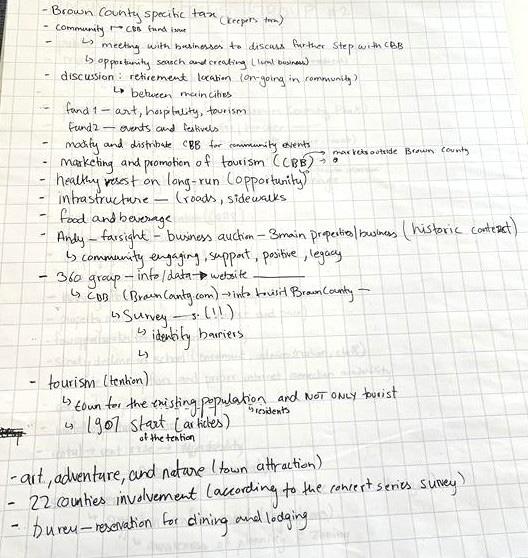 - Brown County specific tax (keeper's tax)
- community → CBB fund issue
↳ meeting with businesses to discuss further step with CBB
↳ opportunity search and creating (local business)
- discussion: retirement location (on-going in community)
↳ between main cities
- fund 1 - art, hospitality, tourism
fund 2 - events and festivals
- modify and distribute CBB for community events
- marketing and promotion of tourism (CBB) → markets outside Brown County
- healthy on long-run (opportunity)
- infrastructure - (roads, sidewalks
- food and beverage
- Andy - farsight - business auction - 3 main properties/business (historic context)
↳ community engaging, support, positive, legacy
- 360 group - info/data → website
↳ CBB (BrownCounty.com) → info to visit Brown County -
↳ Survey - (!!)
↳ identify barriers
↳
- tourism (tention)
↳ town for the existing population and NOT ONLY tourist
↳ residents
↳ 1907 start (articles)
of the tention
- art, adventure, and nature (town attraction)
- 22 counties involvement (according to the concert series survey)
- bureu - reservation for dining and lodging